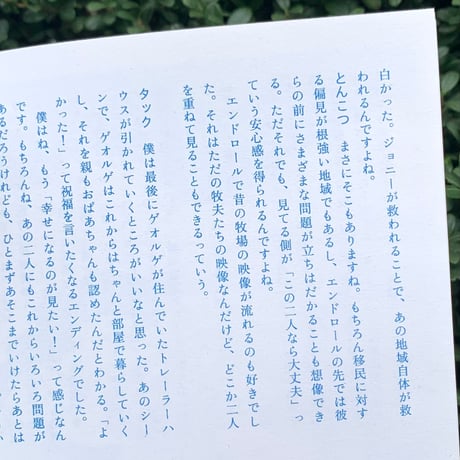 白かった。ジョニーが救われることで、あの地域自体が救
われるんですよね。
とんこつ　まさにそこもありますね。もちろん移民に対す
る偏見が根強い地域でもあるし、エンドロールの先では彼
らの前にさまざまな問題が立ちはだかることも想像でき
る。ただそれでも、見てる側が「この二人なら大丈夫」っ
ていう安心感を得られるんですよね。
　エンドロールで昔の牧場の映像が流れるのも好きでし
た。それはただの牧夫たちの映像なんだけど、どこか二人
を重ねて見ることもできるっていう。
タック　僕は最後にゲオルゲが住んでいたトレーラーハ
ウスが引かれていくところがいいなと思った。あのシー
ンで、ゲオルゲはこれからはちゃんと部屋で暮らしていく
し、それを親もおばあちゃんも認めたんだとわかる。「よ
かった！」って祝福を言いたくなるエンディングでした。
　僕はね、もう「幸せになるのが見たい！」って感じなん
です。もちろんね、あの二人にもこれからいろいろ問題が
あるだろうけれども、ひとまずあそこまでいけたらあとは